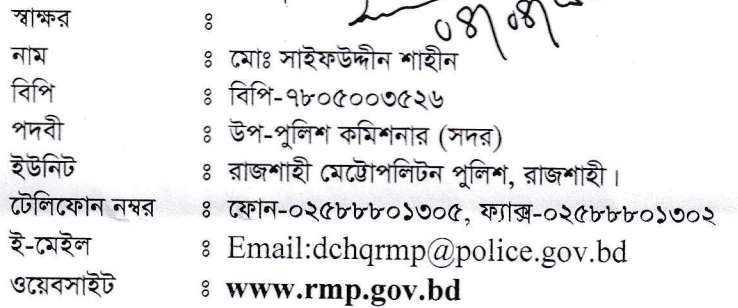 স্বাক্ষর ঃ
নাম ঃ মোঃ সাইফউদ্দীন শাহীন
বিপি ঃ বিপি-৭৮০৫০০৩৫২৬
পদবী ঃ উপ-পুলিশ কমিশনার (সদর)
ইউনিট ঃ রাজশাহী মেট্রোপলিটন পুলিশ, রাজশাহী।
টেলিফোন নম্বর ঃ ফোন-০২৫৮৮৮০১৩০৫, ফ্যাক্স-০২৫৮৮৮০১৩০২
ই-মেইল ঃ Email:dchqrmp@police.gov.bd
ওয়েবসাইট ঃ www.rmp.gov.bd